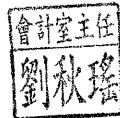 會計室主任
劉秋瑤